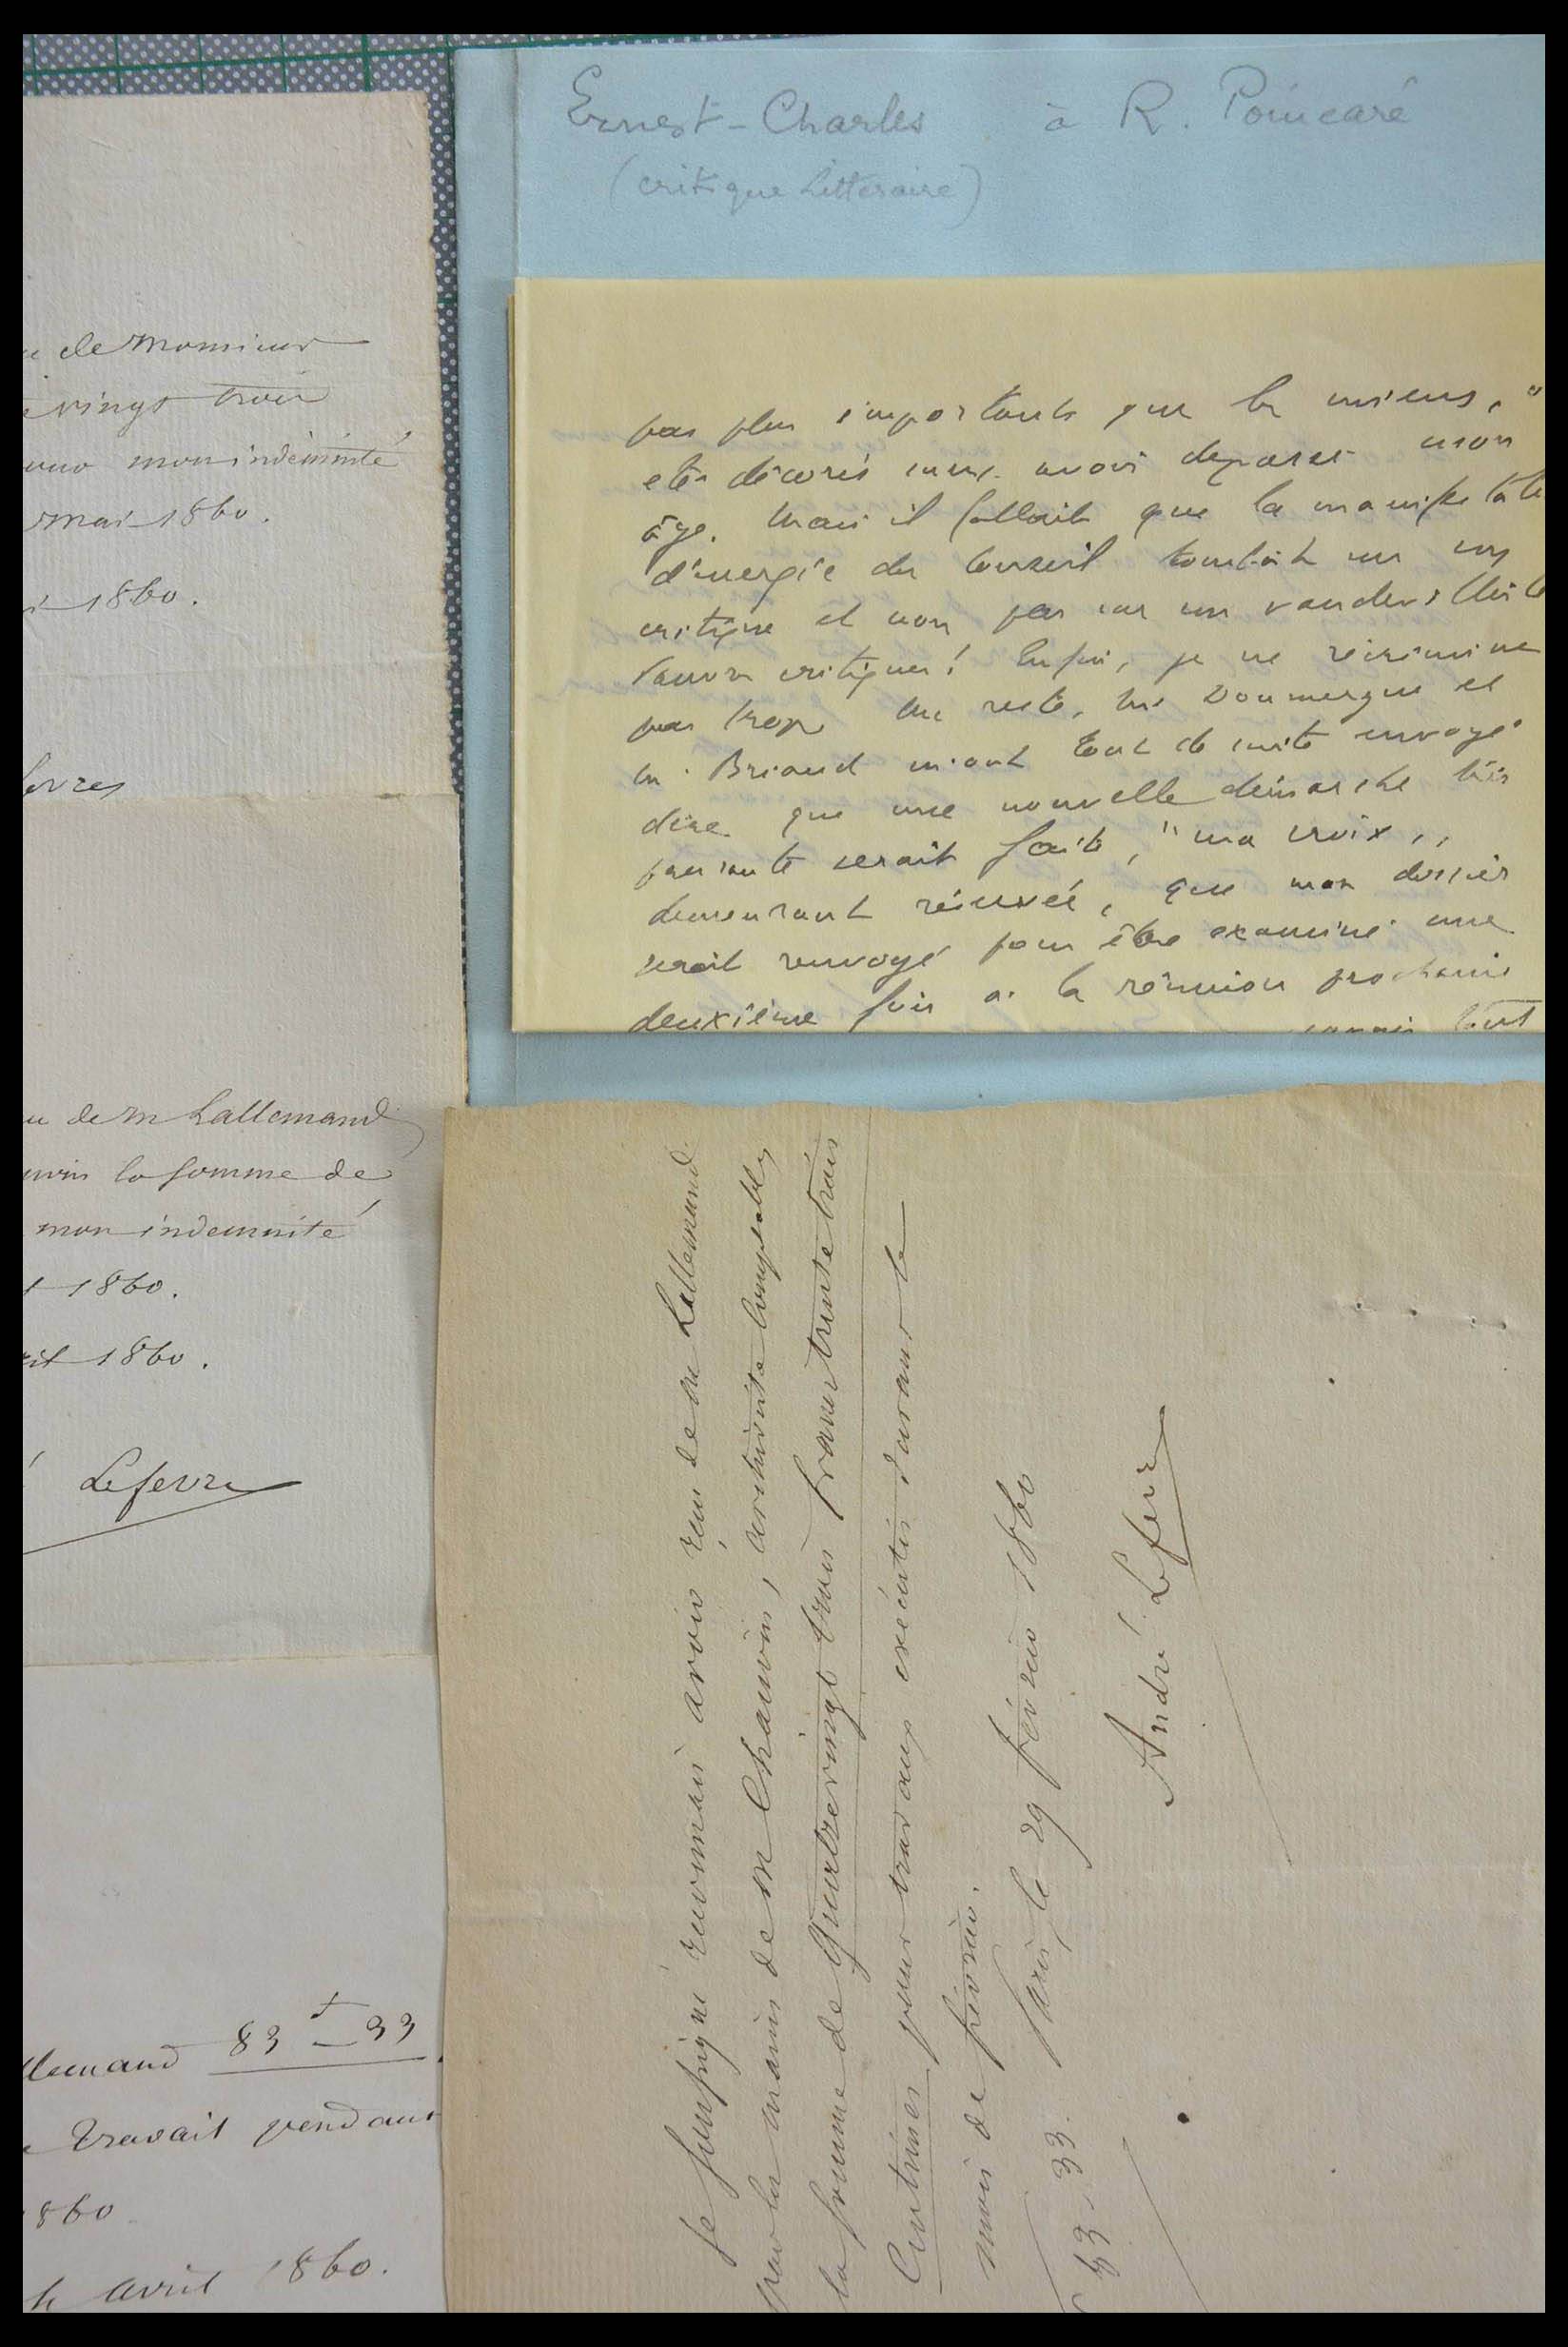 Ernest-Charles à R. Poincaré
(critique littéraire)
pas plus importants que les miens, "
été décorés sans avoir dépassé mon
âge. Mais il fallait que la manifestati
d'énergie du Conseil tombât sur un
critique et non pas sur un vaudevilliste
critiques! Enfin, je ne récrimine
pas trop. Du reste, Mr Doumergue et
M. Briand m'ont tout de suite envoyé
dire que une nouvelle démarche très
pressante serait faite, "ma croix,,
demeurant réservée, que mon dossier
serait renvoyé pour être examiné une
deuxième fois à la réunion prochaine
tout
de Monsieur
vingt trois
mon indémnité
mai 1860.
1860.
fevres
de M Lallemand
la somme de
mon indemnité
1860.
1860.
Lefevre
llemand 83 f - 33
travail pendant
860
avril 1860.
Je soussigné reconnais avoir reçu de M Lallemand
par les mains de M Chauvin, architecte comptable,
la somme de Quatrevingt trois francs trente trois
Centimes pour travaux exécutés durant le
mois de février.
Paris, le 29 février 1860
83 - 33.
André Lefevre